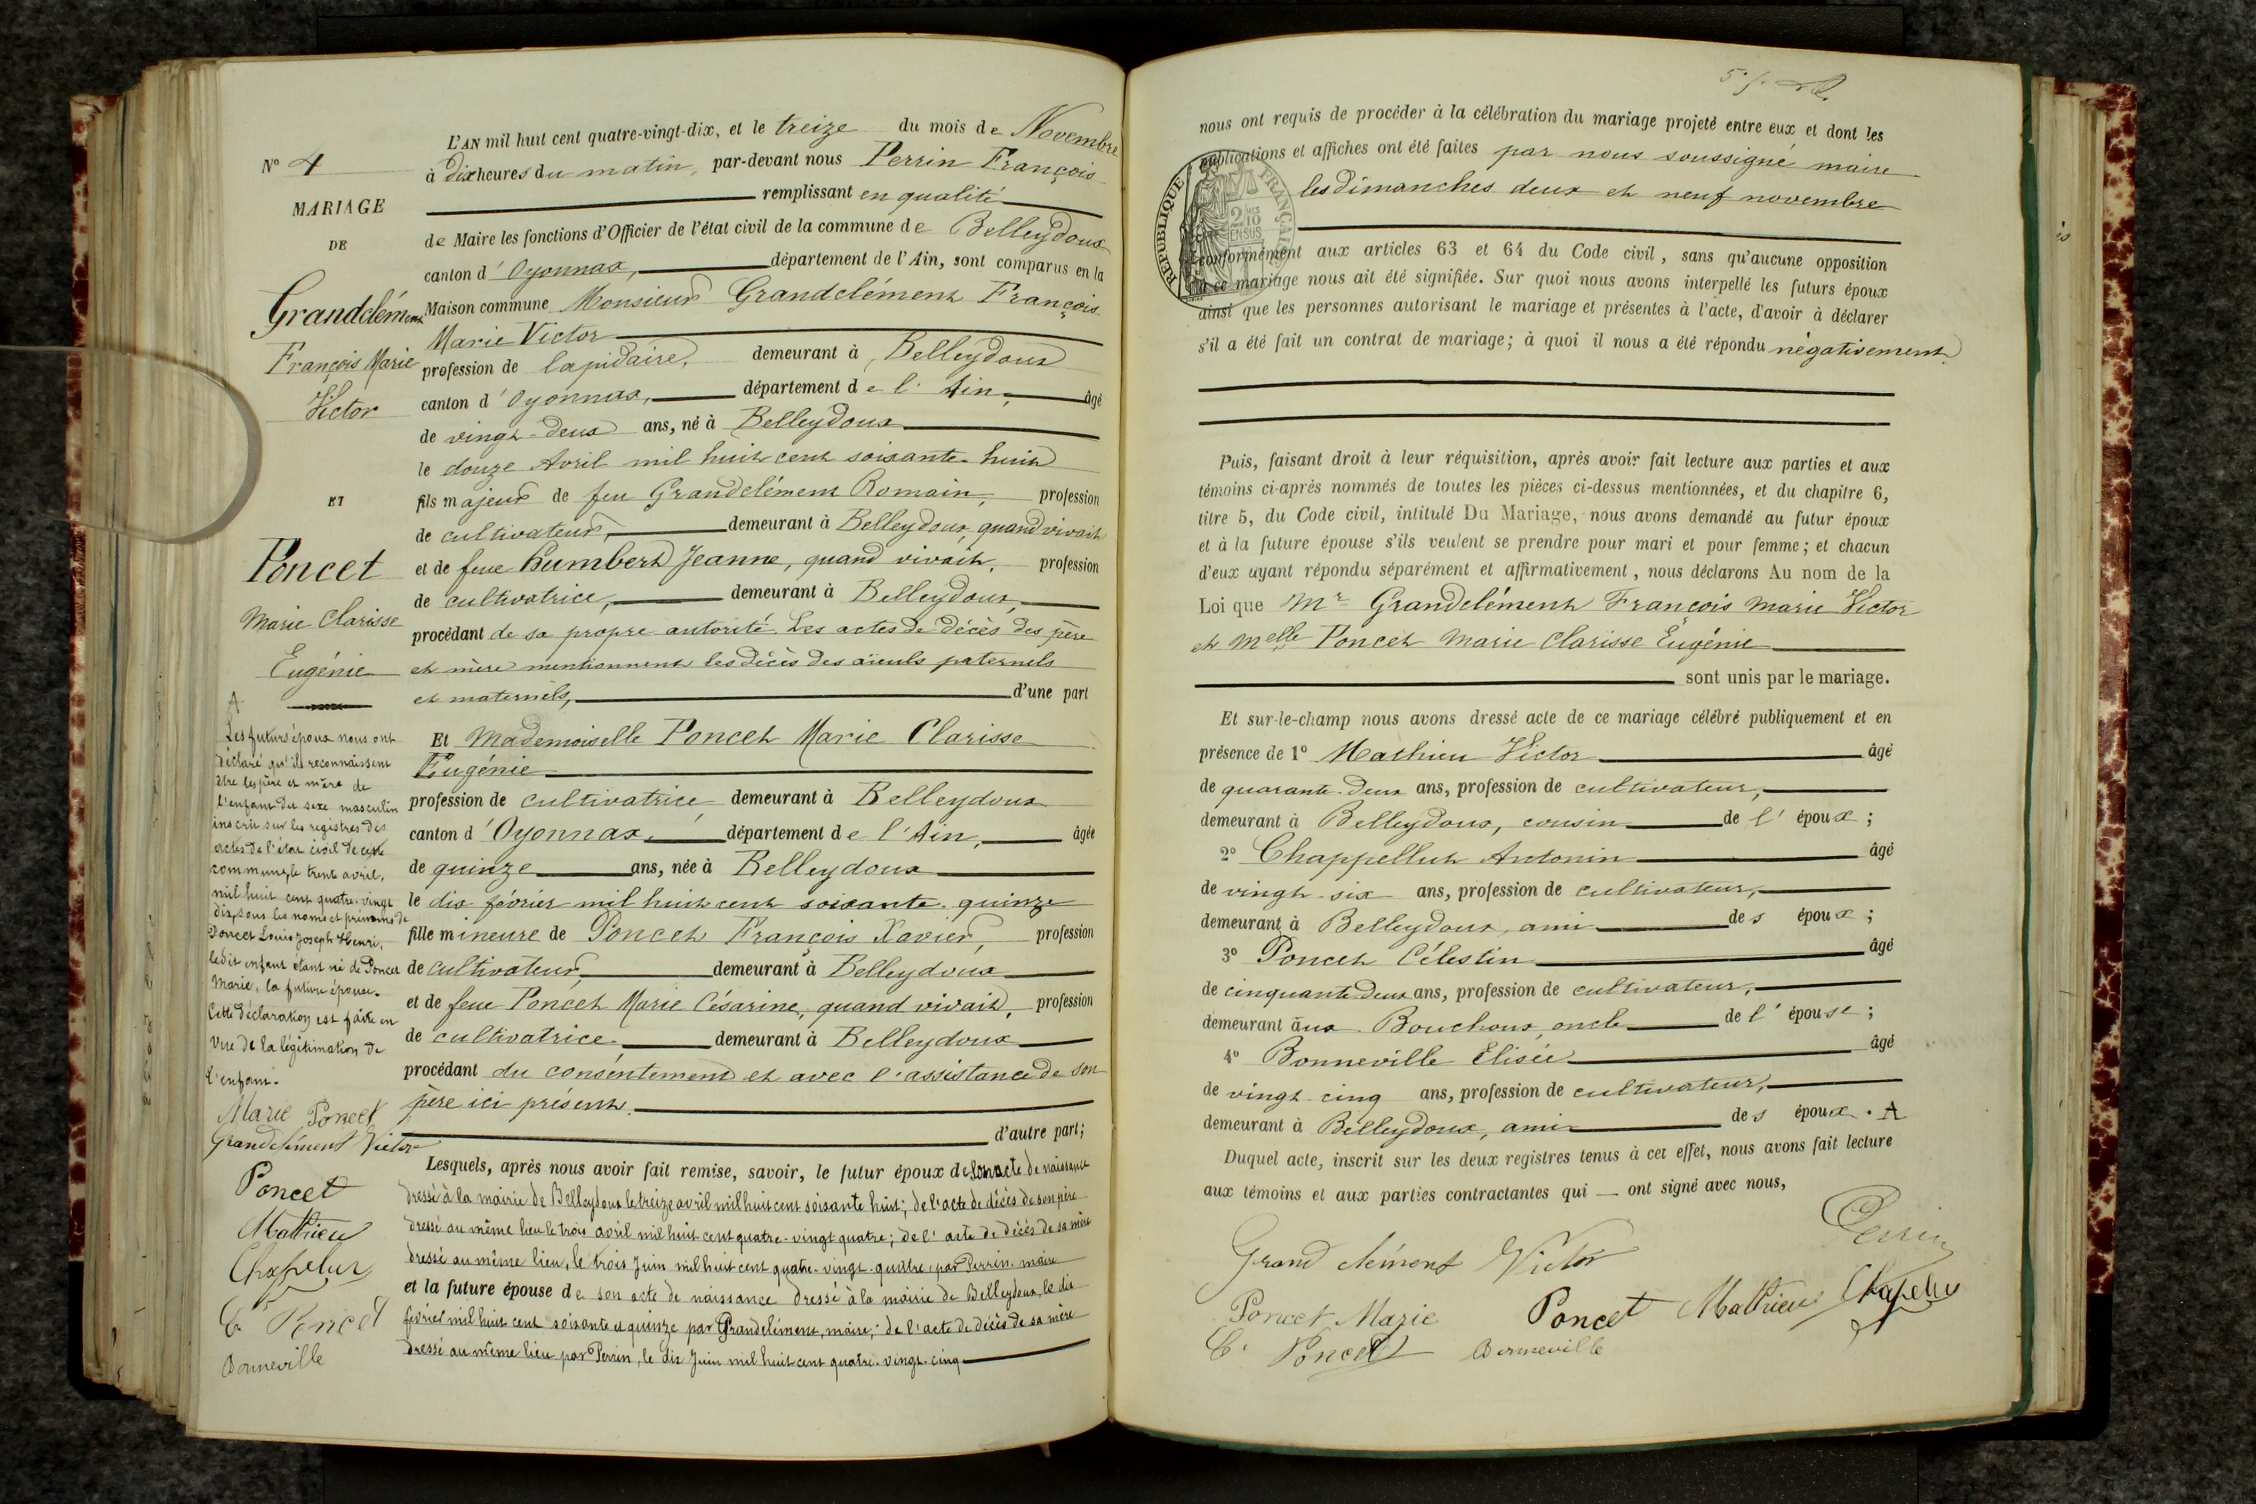 N° 4
MARIAGE
DE
Grandclément
François Marie
Victor
ET
Poncet
Marie Clarisse
Eugénie
A
Les futurs époux nous ont
déclaré qu'ils reconnaissent
être les père et mère de
l'enfant du sexe masculin
inscrit sur les registres des
actes de l'état civil de cette
commune, le trente avril,
mil huit cent quatre-vingt
dix, sous les noms et prénoms de
Poncet Louis Joseph Henri,
le dit enfant étant né de Poncet
Marie, la future épouse.
Cette déclaration est faite en
vue de la légitimation de
l'enfant.
Marie Poncet
Grandclément Victor
Poncet
Mathieu
Chapelu
C. Poncet
Bonneville
L'AN mil huit cent quatre-vingt-dix, et le treize du mois de Novembre
à dix heures du matin, par-devant nous Perrin François
remplissant en qualité
de Maire les fonctions d'Officier de l'état civil de la commune de Belleydoux
canton d'Oyonnax, département de l'Ain, sont comparus en la
Maison commune Monsieur Grandclément François
Marie Victor
profession de lapidaire, demeurant à Belleydoux
canton d'Oyonnax, département de l'Ain, âgé
de vingt-deux ans, né à Belleydoux
le douze Avril mil huit cent soixante-huit
fils majeur de feu Grandclément Romain, profession
de cultivateur, demeurant à Belleydoux, quand vivait
et de feue Humbert Jeanne, quand vivait, profession
de cultivatrice, demeurant à Belleydoux,
procédant de sa propre autorité. Les actes de décès des père
et mère mentionnent les décès des aïeuls paternels
et maternels, d'une part
Et Mademoiselle Poncet Marie Clarisse
Eugénie
profession de cultivatrice demeurant à Belleydoux
canton d'Oyonnax, département de l'Ain, âgée
de quinze ans, née à Belleydoux
le dix février mil huit cent soixante-quinze
fille mineure de Poncet François Xavier, profession
de cultivateur, demeurant à Belleydoux
et de feue Poncet Marie Césarine, quand vivait, profession
de cultivatrice demeurant à Belleydoux
procédant du consentement et avec l'assistance de son
père ici présent.
d'autre part;
Lesquels, après nous avoir fait remise, savoir, le futur époux de son acte de naissance
dressé à la mairie de Belleydoux le treize avril mil huit cent soixante huit; de l'acte de décès de son père
dressé au même lieu le trois avril mil huit cent quatre-vingt quatre; de l'acte de décès de sa mère
dressé au même lieu, le trois Juin mil huit cent quatre-vingt-quatre, par Perrin, maire
et la future épouse de son acte de naissance dressé à la mairie de Belleydoux, le dix
février mil huit cent soixante et quinze par Grandclément, maire; de l'acte de décès de sa mère
dressé au même lieu par Perrin, le dix Juin mil huit cent quatre-vingt-cinq
nous ont requis de procéder à la célébration du mariage projeté entre eux et dont les
publications et affiches ont été faites par nous soussigné maire
les dimanches deux et neuf novembre
REPUBLIQUE FRANÇAISE
conformément aux articles 63 et 64 du Code civil, sans qu'aucune opposition
à ce mariage nous ait été signifiée. Sur quoi nous avons interpellé les futurs époux
ainsi que les personnes autorisant le mariage et présentes à l'acte, d'avoir à déclarer
s'il a été fait un contrat de mariage; à quoi il nous a été répondu négativement.
Puis, faisant droit à leur réquisition, après avoir fait lecture aux parties et aux
témoins ci-après nommés de toutes les pièces ci-dessus mentionnées, et du chapitre 6,
titre 5, du Code civil, intitulé Du Mariage, nous avons demandé au futur époux
et à la future épouse s'ils veulent se prendre pour mari et pour femme; et chacun
d'eux ayant répondu séparément et affirmativement, nous déclarons Au nom de la
Loi que Mr Grandclément François Marie Victor
et Melle Poncet Marie Clarisse Eugénie
sont unis par le mariage.
Et sur-le-champ nous avons dressé acte de ce mariage célébré publiquement et en
présence de 1° Mathieu Victor âgé
de quarante-deux ans, profession de cultivateur,
demeurant à Belleydoux, cousin de l'époux;
2° Chappellut Antonin âgé
de vingt-six ans, profession de cultivateur,
demeurant à Belleydoux, ami des époux;
3° Poncet Célestin âgé
de cinquante-deux ans, profession de cultivateur,
demeurant aux Bouchoux, oncle de l'épouse;
4° Bonneville Elisée âgé
de vingt-cinq ans, profession de cultivateur,
demeurant à Belleydoux, ami des époux. A
Duquel acte, inscrit sur les deux registres tenus à cet effet, nous avons fait lecture
aux témoins et aux parties contractantes qui ont signé avec nous,
Perrin
Grandclément Victor
Poncet Marie Poncet Mathieu Chapelu
C. Poncet Bonneville